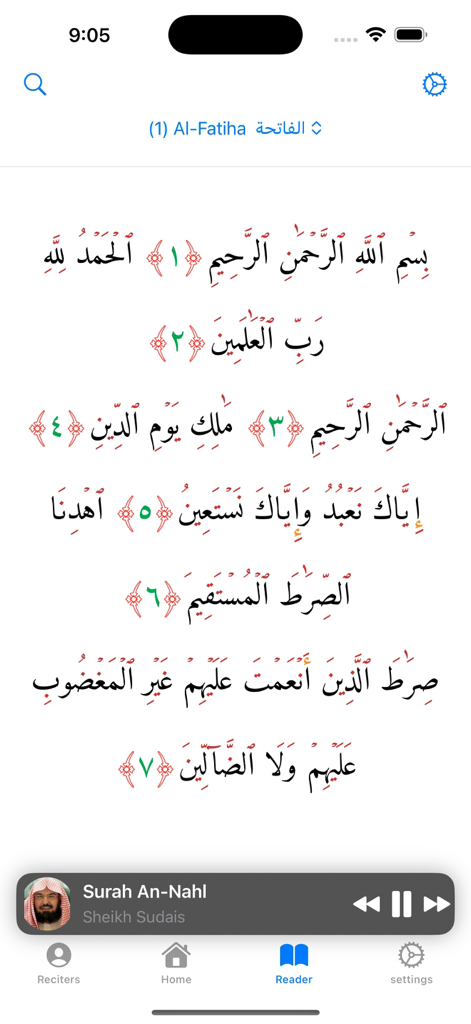 9:05
(1) Al-Fatiha الفاتحة
بِسْمِ ٱللَّهِ ٱلرَّحْمَٰنِ ٱلرَّحِيمِ ﴿١﴾ ٱلْحَمْدُ لِلَّهِ
رَبِّ ٱلْعَٰلَمِينَ ﴿٢﴾
ٱلرَّحْمَٰنِ ٱلرَّحِيمِ ﴿٣﴾ مَٰلِكِ يَوْمِ ٱلدِّينِ ﴿٤﴾
إِيَّاكَ نَعْبُدُ وَإِيَّاكَ نَسْتَعِينُ ﴿٥﴾ ٱهْدِنَا
ٱلصِّرَٰطَ ٱلْمُسْتَقِيمَ ﴿٦﴾
صِرَٰطَ ٱلَّذِينَ أَنْعَمْتَ عَلَيْهِمْ غَيْرِ ٱلْمَغْضُوبِ
عَلَيْهِمْ وَلَا ٱلضَّآلِّينَ ﴿٧﴾
Surah An-Nahl
Sheikh Sudais
Reciters Home Reader settings